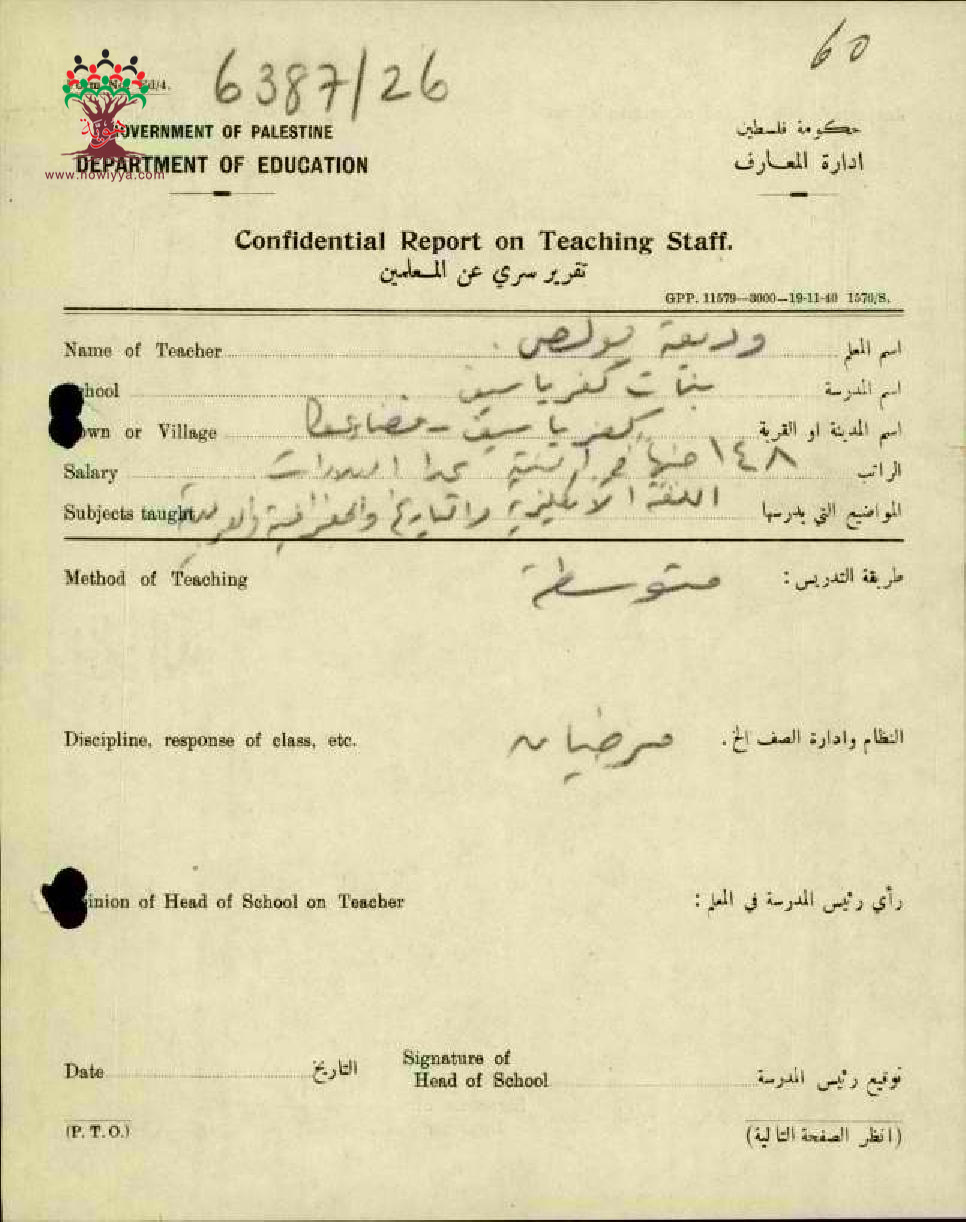 60
6387/26
Form No. Ed/4.
هوية
www.howiyya.com
GOVERNMENT OF PALESTINE
حكومة فلسطين
DEPARTMENT OF EDUCATION
ادارة المعارف
Confidential Report on Teaching Staff.
تقرير سري عن المعلمين
GPP. 11579—3000—19-11-40 1570/S.
Name of Teacher وديعة بولص اسم المعلم
School بنات كفرياسيف اسم المدرسة
Town or Village كفرياسيف - قضاء عكا اسم المدينة او القرية
Salary ١٤٨ جنيها عدا العلاوات الراتب
Subjects taught اللغة الانكليزية والتاريخ والجغرافية المواضيع التي يدرسها
Method of Teaching متوسطة طريقة التدريس :
Discipline, response of class, etc. مرضيان النظام وادارة الصف الخ .
Opinion of Head of School on Teacher رأي رئيس المدرسة في المعلم :
Date التاريخ Signature of Head of School توقيع رئيس المدرسة
(P. T. O.) (انظر الصفحة التالية)